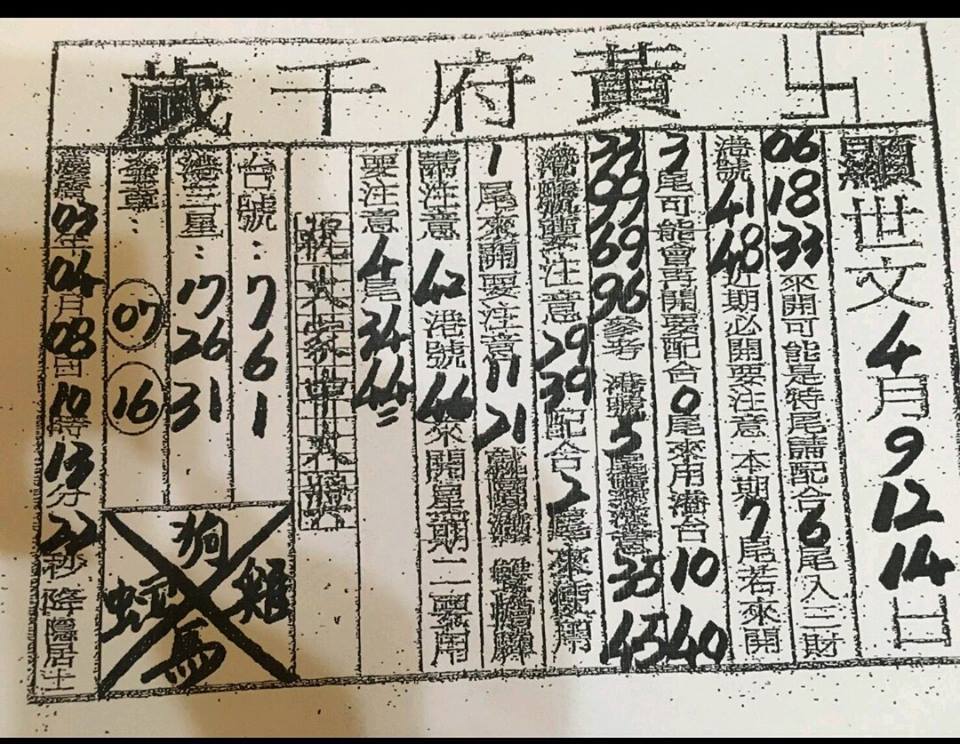 卐黃府千歲
顯世文4月9 12 14日
06 18 33來開可能是特尾請配合6尾入三財
港號41 48近期必開要注意本期7尾若來開
3尾可能會再開要配合0尾來用港台10 40
33 99 69 96參考 港號5尾 35 45
港號要注意29 39配合2尾來使用
1尾來開要注意11 21
需注意42港號44來開星期二要用
要注意4尾34 44=
祝大家中大獎
台號:7 6 1
港三星:17 26 31
:07 16
狗 雞 馬
03年04月08日10時13分22秒降隱居士